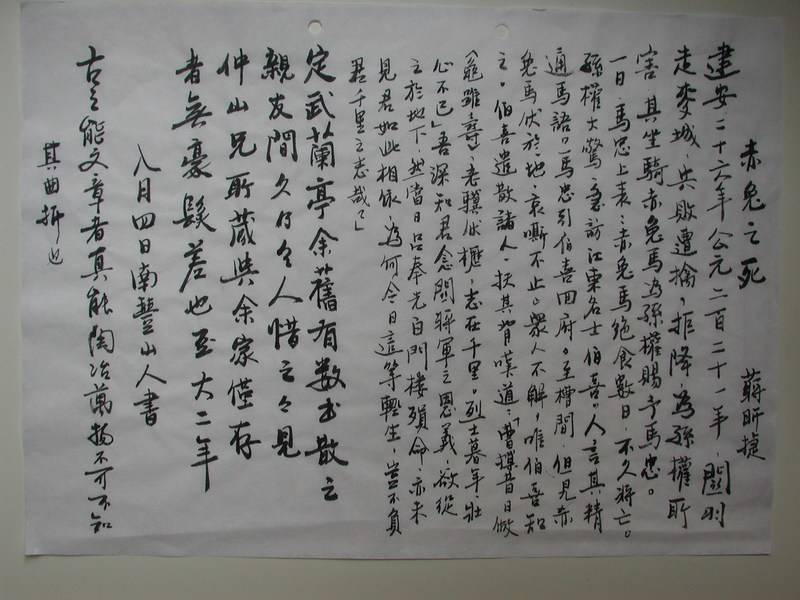 赤兔之死 蔣昕捷
建安二十六年公元二百二十一年，關羽
走麥城，兵敗遭擒，拒降，為孫權所
害。其坐騎赤兔馬為孫權賜予馬忠。
一日，馬忠上表：赤兔馬絕食數日，不久將亡。
孫權大驚，急訪江東名士伯喜。人言其精
通馬語。馬忠引伯喜回府，至槽間，但見赤
兔馬伏於地，哀嘶不止。眾人不解，唯伯喜知
之。伯喜遣散諸人，扶其背嘆道：「曹操昔日做
《龜雖壽》，老驥伏櫪，志在千里。烈士暮年，壯
心不已」吾深知君念關將軍之恩義，欲從
之於地下。然當日呂奉先白門樓殞命，亦未
見君如此相依，為何今日這等輕生，豈不負
君千里之志哉？」
定武蘭亭余舊有數本散之
親友間久仍令人惜之々見
仲山兄所藏與余家僅存
者無豪髮差也至大二年
八月四日南豐山人書
古之能文章者真能陶冶萬物不可不知
其曲折也